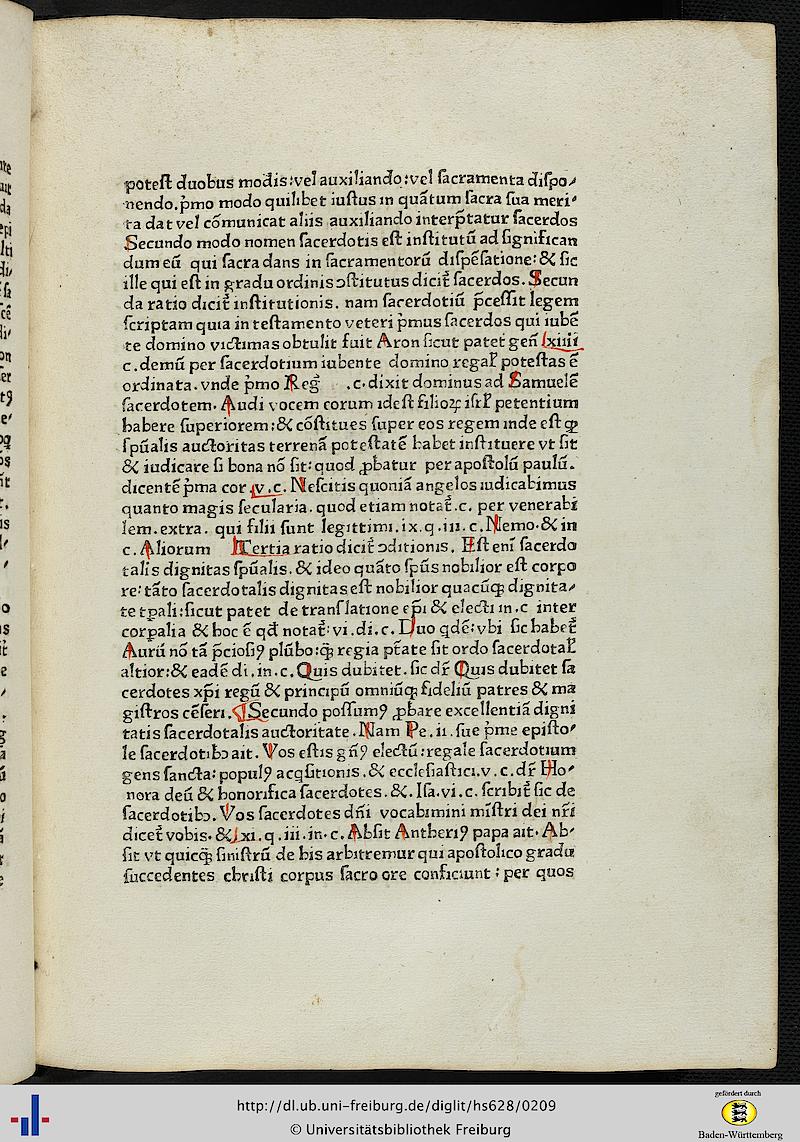 poteſt duobus modis: vel auxiliando: vel ſacramenta diſpo⸗
nendo. p̄mo modo quilibet iuſtus in quātum ſacra ſua meri⸗
ta dat vel cōmunicat aliis auxiliando interp̄tatur ſacerdos
Secundo modo nomen ſacerdotis eſt inſtitutū ad ſignifican
dum eū qui ſacra dans in ſacramentorū diſpēſatione: & ſic
ille qui eſt in gradu ordinis ↄſtitutus dicit᷑ ſacerdos. Secun
da ratio dicit᷑ inſtitutionis. nam ſacerdotiū p̄ceſſit legem
ſcriptam quia in teſtamento veteri p̄mus ſacerdos qui iubē
te domino victimas obtulit fuit Aron ſicut patet gen̄ lxiiii
c. demū per ſacerdotium iubente domino regal̓ poteſtas ē
ordinata. vnde p̄mo Reg̃ .c. dixit dominus ad Samuelē
ſacerdotem. Audi vocem eorum id eſt filioꝝ iſrl̓ petentium
habere ſuperiorem: & cōſtitues ſuper eos regem inde eſt ꝙ
ſpūalis auctoritas terrenā poteſtatē habet inſtituere vt ſit
& iudicare ſi bona nō ſit: quod ꝓbatur per apoſtolū paulū.
dicentē p̄ma cor .v.c. Neſcitis quoniā angelos iudicabimus
quanto magis ſecularia. quod etiam notat᷑.c. per venerabi
lem. extra. qui filii ſunt legittimi. ix.q.iii.c. Nemo. & in
c. Aliorum Tertia ratio dicit᷑ ↄditionis. Eſt enī ſacerdo
talis dignitas ſpūalis. & ideo quāto ſpūs nobilior eſt corpo
re: tāto ſacerdotalis dignitas eſt nobilior quacūꝙ dignita⸗
te tp̄ali: ſicut patet de tranſlatione ep̄i & electi in.c inter
corp̄alia & hoc ē qd̄ notat᷑: vi. di. c. Duo qdē: vbi ſic habet᷑
Aurū nō tā p̄cioſiꝰ plūbo: ꝙ̄ regia ptāte ſit ordo ſacerdotal̓
altior: & eadē di. in. c. Quis dubitet. ſic dr̄ Quis dubitet ſa
cerdotes xp̄i regū & principū omniūꝙ fideliū patres & ma
giſtros cēſeri. ¶ Secundo poſſumꝰ ꝓbare excellentiā digni
tatis ſacerdotalis auctoritate. Nam Pe. ii. ſue p̄me epiſto⸗
le ſacerdotibꝫ ait. Vos eſtis gn̄ꝰ electū: regale ſacerdotium
gens ſancta: populꝰ acqſitionis. & eccleſiaſtici. v.c. dr̄ Ho⸗
nora deū & honorifica ſacerdotes. &. Iſa. vi. c. ſcribit᷑ ſic de
ſacerdotibꝫ. Vos ſacerdotes dn̄i vocabimini miſtri dei nr̄i
dicet᷑ vobis. & xi. q. iii. in. c. Abſit Antheriꝰ papa ait. Ab⸗
ſit vt quicꝙ̄ ſiniſtrū de his arbitremur qui apoſtolico gradui
ſuccedentes chriſti corpus ſacro ore conficiunt: per quos
http://dl.ub.uni-freiburg.de/diglit/hs628/0209
© Universitätsbibliothek Freiburg
gefördert durch
Baden-Württemberg